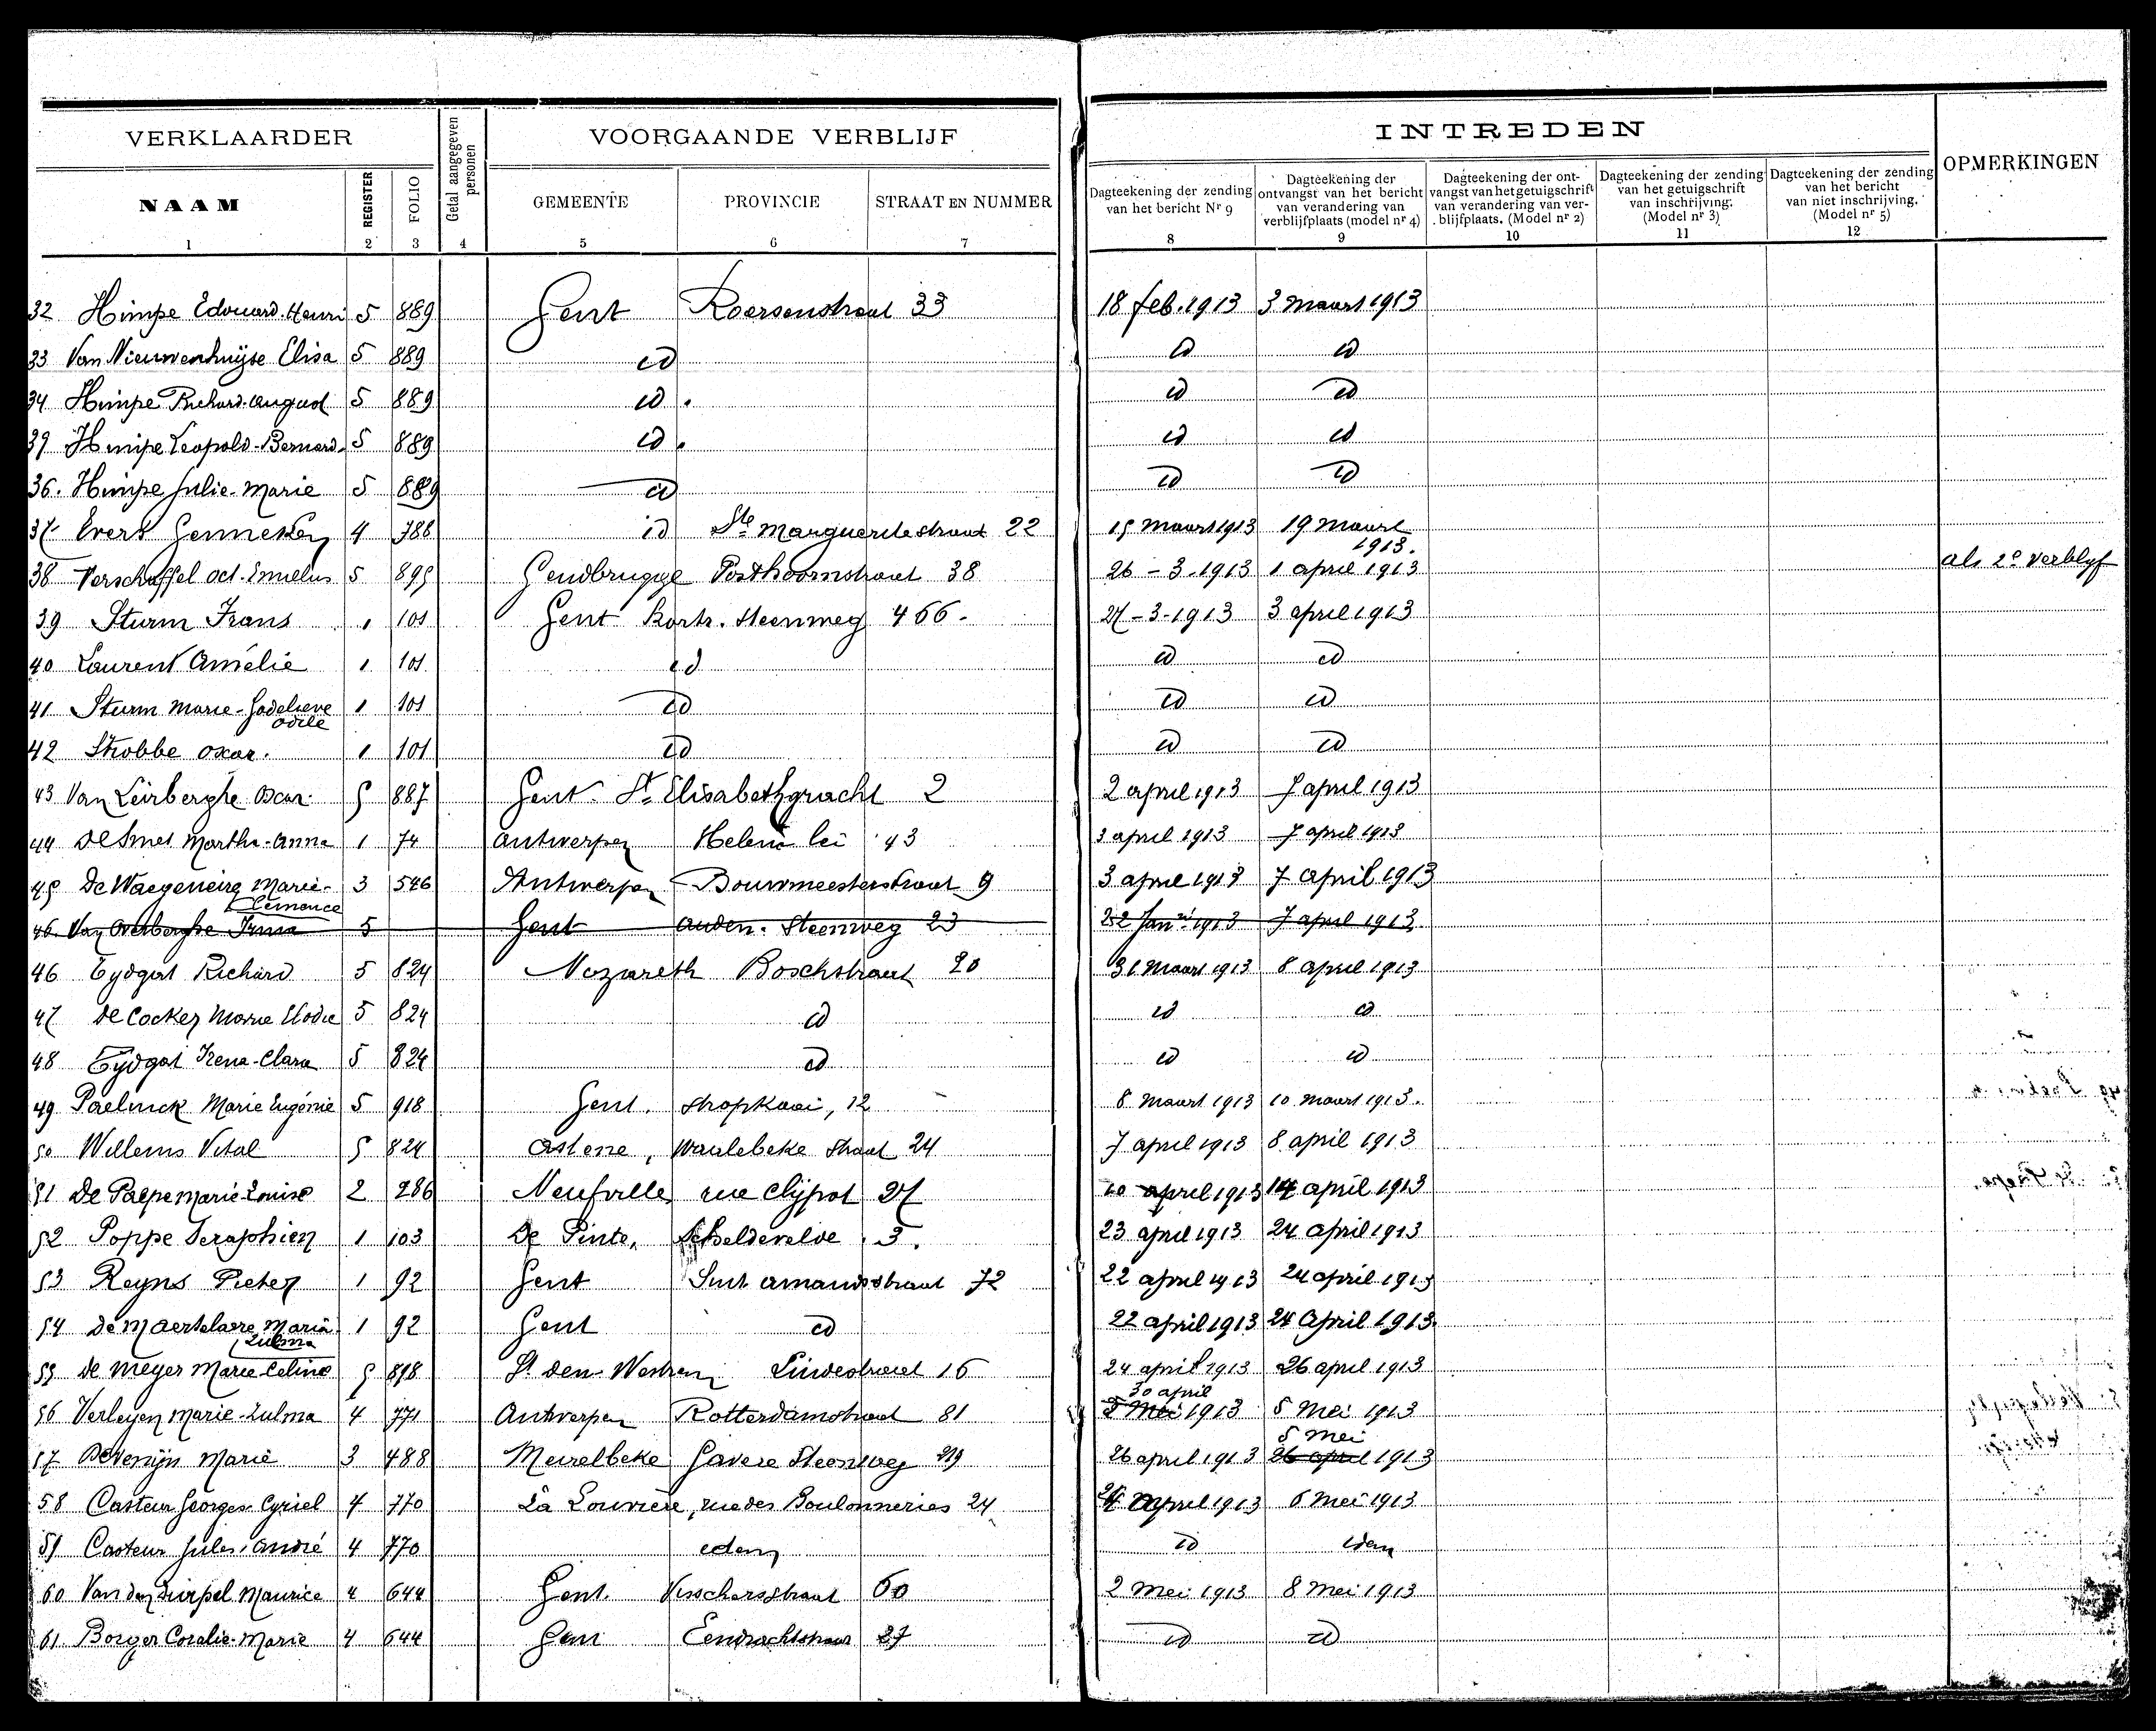 VERKLAARDER
Getal aangegeven personen
VOORGAANDE VERBLIJF
INTREDEN
OPMERKINGEN
NAAM REGISTER FOLIO GEMEENTE PROVINCIE STRAAT EN NUMMER
Dagteekening der zending van het bericht Nr 9
Dagteekening der ontvangst van het bericht van verandering van verblijfplaats (model nr 4)
Dagteekening der ont- vangst van het getuigschrift van verandering van ver- blijfplaats. (Model nr 2)
Dagteekening der zending van het getuigschrift van inschrijving. (Model nr 3)
Dagteekening der zending van het bericht van niet inschrijving. (Model nr 5)
1 2 3 4 5 6 7 8 9 10 11 12
32 Himpe Edouard Henri 5 889 Gent Roersenstraat 33 18 feb. 1913 3 maart 1913
33 Van Nieuwenhuyse Elisa 5 889 id id id
34 Himpe Richard August 5 889 id. id id
39 Himpe Leopold-Bernard 5 889 id. id id
36. Himpe Julie-Marie 5 889 id id id
37 Evers Genneken 4 788 id Ste Margueritestraat 22 15 maart 1913 19 maart 1913.
38 Verschaffel Oct. Emelus 5 895 Gendbrugge Posthoornstraat 38 26-3.1913 1 april 1913 als 2e verblyf
39 Sturm Frans 1 101 Gent Kortr. Steenweg 466. 27-3-1913 3 april 1913
40 Laurent Amélie 1 101 id id id
41 Sturm Marie-Godelieve Odile 1 101 id id id
42 Strobbe Oscar. 1 101 id id id
43 Van Leirberghe Oscar 5 887 Gent St Elisabethgracht 2 2 april 1913 7 april 1913
44 De Smet Martha-Anna 1 74 Antwerpen Helena lei 43 3 april 1913 7 april 1913
45 De Waegeneire Marie-Clemence 3 546 Antwerpen Bouwmeesterstraat 9 3 april 1913 7 april 1913
46. Van Overberghe Irma 5 Gent Auden. Steenweg 23 22 Jan 1913 7 april 1913
46 Eydgat Richard 5 824 Nazareth Boschstraat 20 31 Maart 1913 8 april 1913
47 De Cocker Marie Elodie 5 824 id id id
48 Eydgat Irena-Clara 5 824 id id id
49 Paelinck Marie Eugénie 5 918 Gent. Stropkaai, 12 8 maart 1913 10 maart 1913.
50 Willems Vital 5 824 Astene, Waulebeke straat 24 7 april 1913 8 april 1913
51 De Paepe Marie-Louise 2 286 Neufville rue Clypot 27 10 april 1913 14 april 1913
52 Poppe Seraphien 1 103 De Pinte, Scheldevelde 3. 23 april 1913 24 april 1913
53 Reyns Pieter 1 92 Gent Sint Amandsstraat 72 22 april 1913 24 april 1913
54 De Maertelaere Maria Zulma 1 92 Gent id 22 april 1913 24 april 1913.
55 De Meyer Marie-Celine 5 898 St den-Westren Lindestraat 16 24 april 1913 26 april 1913
56 Verleyen Marie-Zulma 4 771 Antwerpen Rotterdamstraat 81 30 april 5 Mei 1913 5 Mei 1913
57 DeVenijn Marie 3 488 Meirelbeke Gavere Steenweg 219 26 april 1913 5 mei 26 april 1913
58 Casteur Georges-Cyriel 4 770 La Louvière, rue des Boulonneries 24 april 1913 6 mei 1913
59 Casteur Jules-André 4 770 idem id idem
60 Van den Durpel Maurice 4 644 Gent. Visschersstraat 60 2 Mei 1913 8 mei 1913
61 Borger Coralie-Marie 4 644 Gent Eendrachtstraat 27 id id